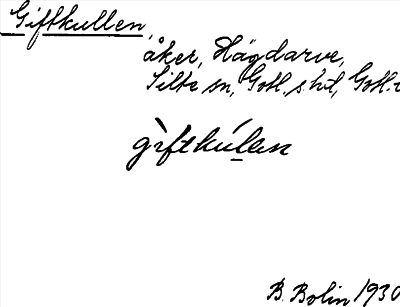 Giftkullen,
åker, Hägdarve,
Silte sn, Gotl. s. hd, Gotl. l
gìftkúlen
B. Bolin 1930